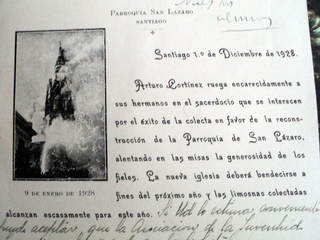 Parroquia San Lázaro
Santiago
Santiago 1.o de Diciembre de 1928.
Arturo Cortinez ruega encarecidamente a
sus hermanos en el sacerdocio que se interecen
por el éxito de la colecta en favor de la recons-
trucción de la Parroquia de San Lázaro,
alentando en las misas la generosidad de los
fieles. La nueva iglesia deberá bendecirse a
9 de enero de 1928
fines del próximo año y las limosnas colectadas
alcanzan escasamente para este año. Si Ud lo estima conveniente
puede aceptar, que la Asociación de la Juventud